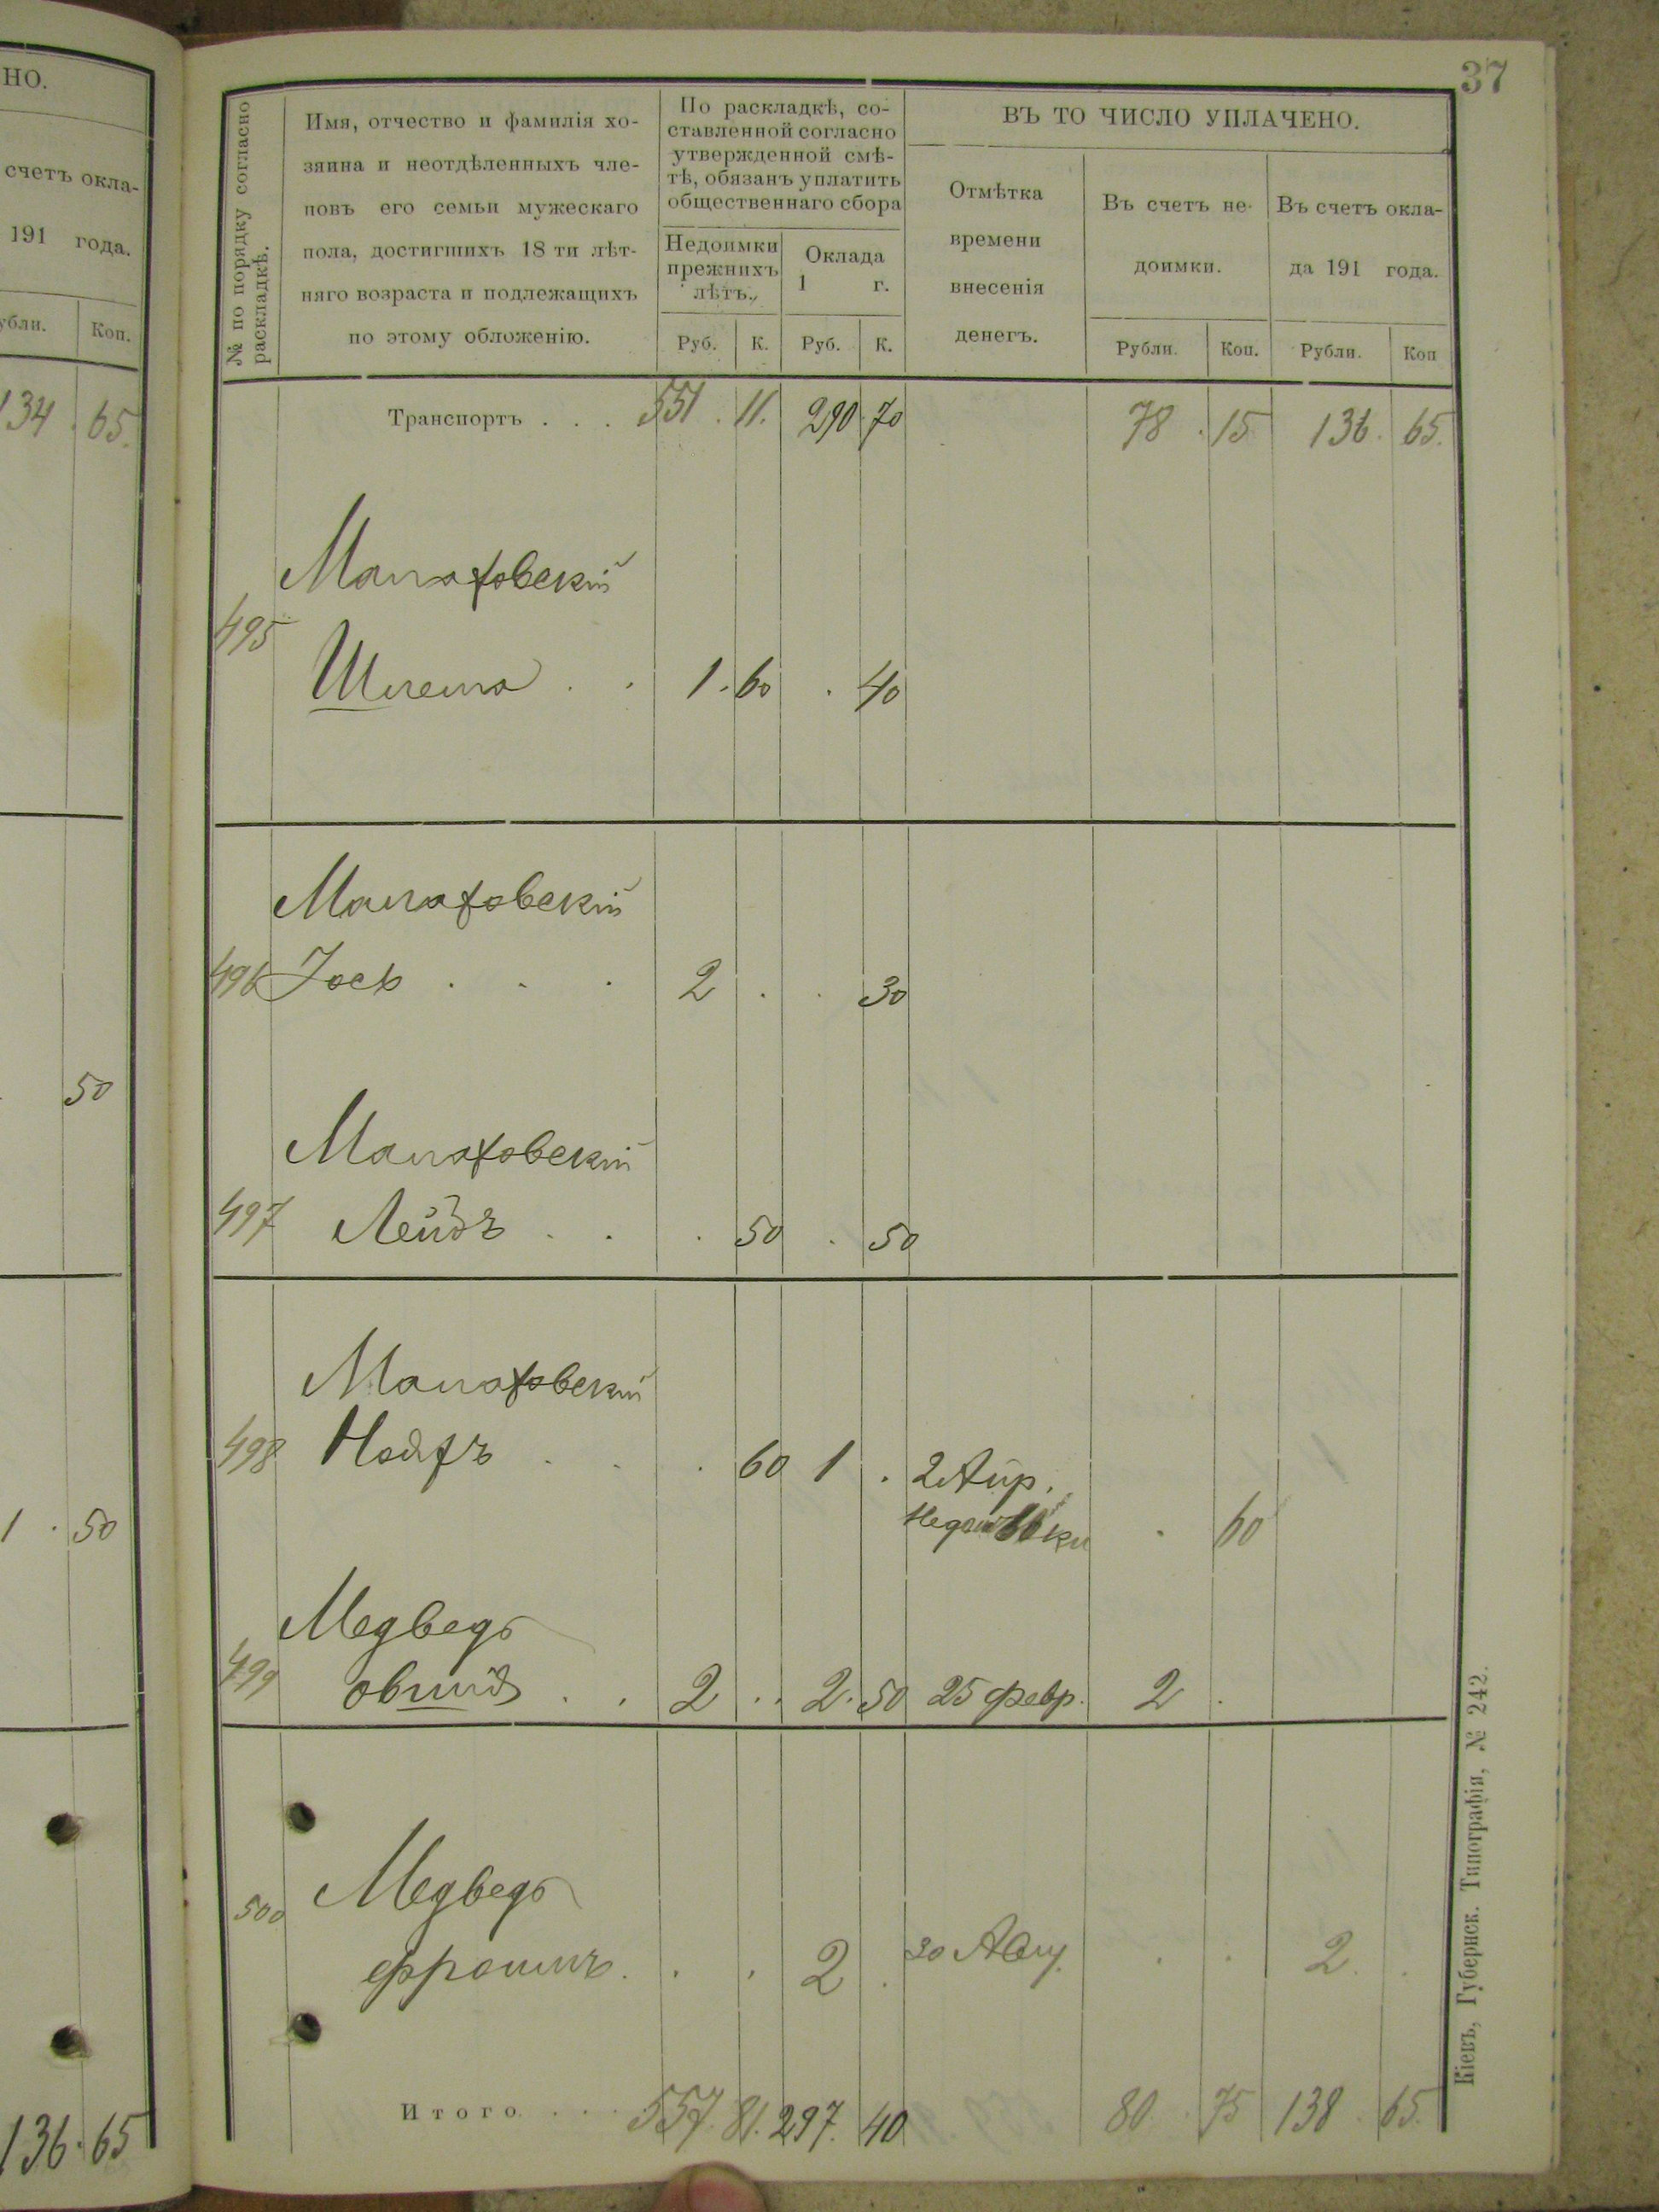 НО.
счетъ окла-
191 года.
убли. Коп.
134 65.
50
1 . 50
136. 65
37
№ по порядку согласно
раскладкѣ.
Имя, отчество и фамилія хо-
зяина и неотдѣленныхъ чле-
новъ его семьи мужескаго
пола, достигшихъ 18 ти лѣт-
няго возраста и подлежащихъ
по этому обложенію.
По раскладкѣ, со-
ставленной согласно
утвержденной смѣ-
тѣ, обязанъ уплатить
общественнаго сбора
Недоимки
прежнихъ
лѣтъ.
Руб. К.
Оклада
1 г.
Руб. К.
ВЪ ТО ЧИСЛО УПЛАЧЕНО.
Отмѣтка
времени
внесенія
денегъ.
Въ счетъ не-
доимки.
Рубли. Коп.
Въ счетъ окла-
да 191 года.
Рубли. Коп
Транспортъ . . . 551 . 11. 290 70 78 . 15 136. 65.
Малаховскій
495
Шлема . . 1. 60 . 40
Малаховскій
496 Іось . . . 2 . . 30
Малаховскій
497 Лейзъ . . . 50 . 50
Малаховскій
498 . . . 60 1 . 2 Апр.
60 . 60
Медведь
499 Овшій . . 2 . . 2. 50 25 февр. 2 .
Медведь
500
Фроимъ. . . 2 . 30 Авг. . . 2. .
Итого. . . . 557. 81. 297. 40 80 . 75 138 . 65.
Кіевъ, Губернск. Типографія, № 242.